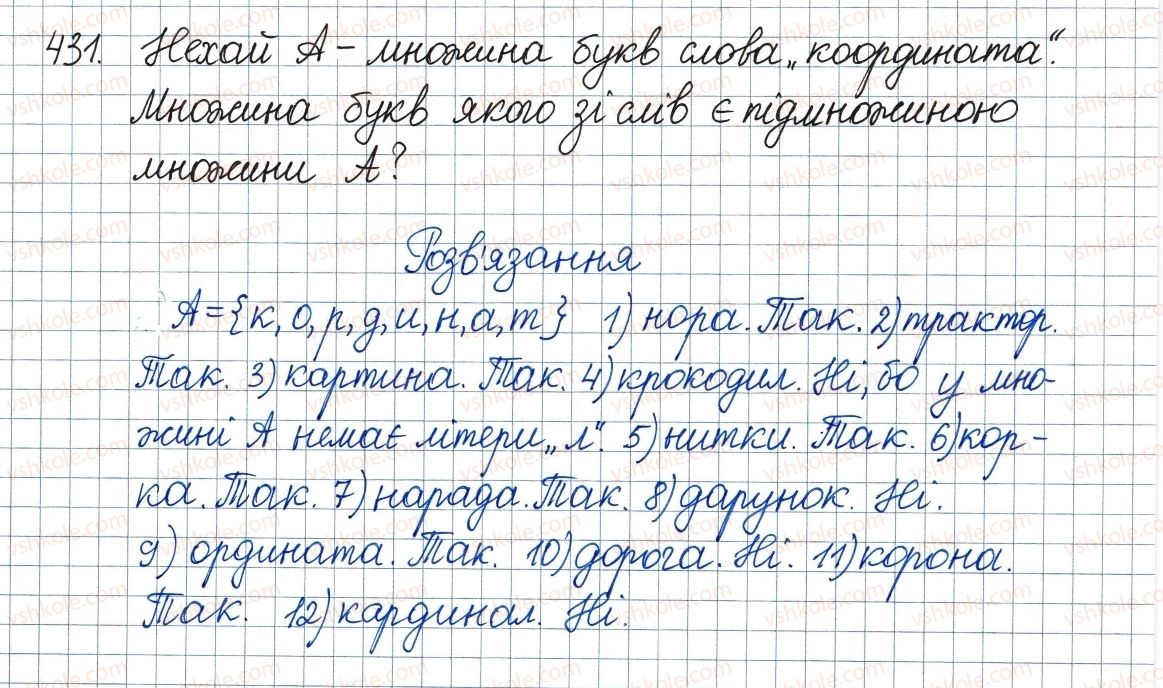 431. Нехай А – множина букв слова „координата“.
Множина букв якого зі слів є підмножиною
множини А?
Розв'язання
А={к, о, р, д, и, н, а, т} 1) нора. Так. 2) трактор.
Так. 3) картина. Так. 4) крокодил. Ні, бо у мно-
жині А немає літери „л“. 5) нитки. Так. 6) кор-
ка. Так. 7) нарада. Так. 8) дарунок. Ні.
9) ордината. Так. 10) дорога. Ні. 11) корона.
Так. 12) кардинал. Ні.
vshkole.com